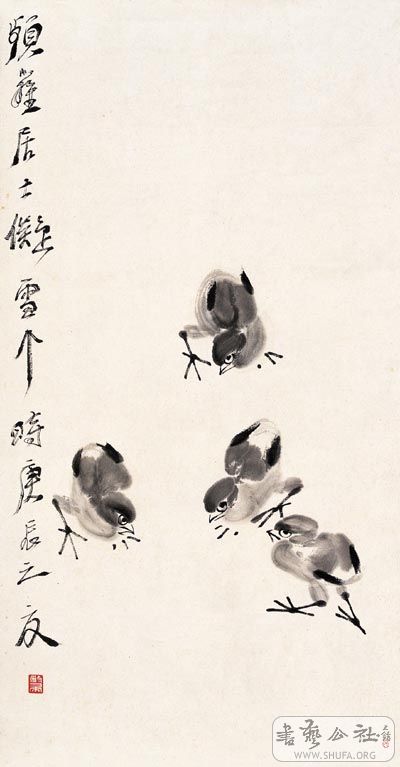 居士擬雪个時庚辰之夏
書藝公社
WWW.SHUFA.ORG